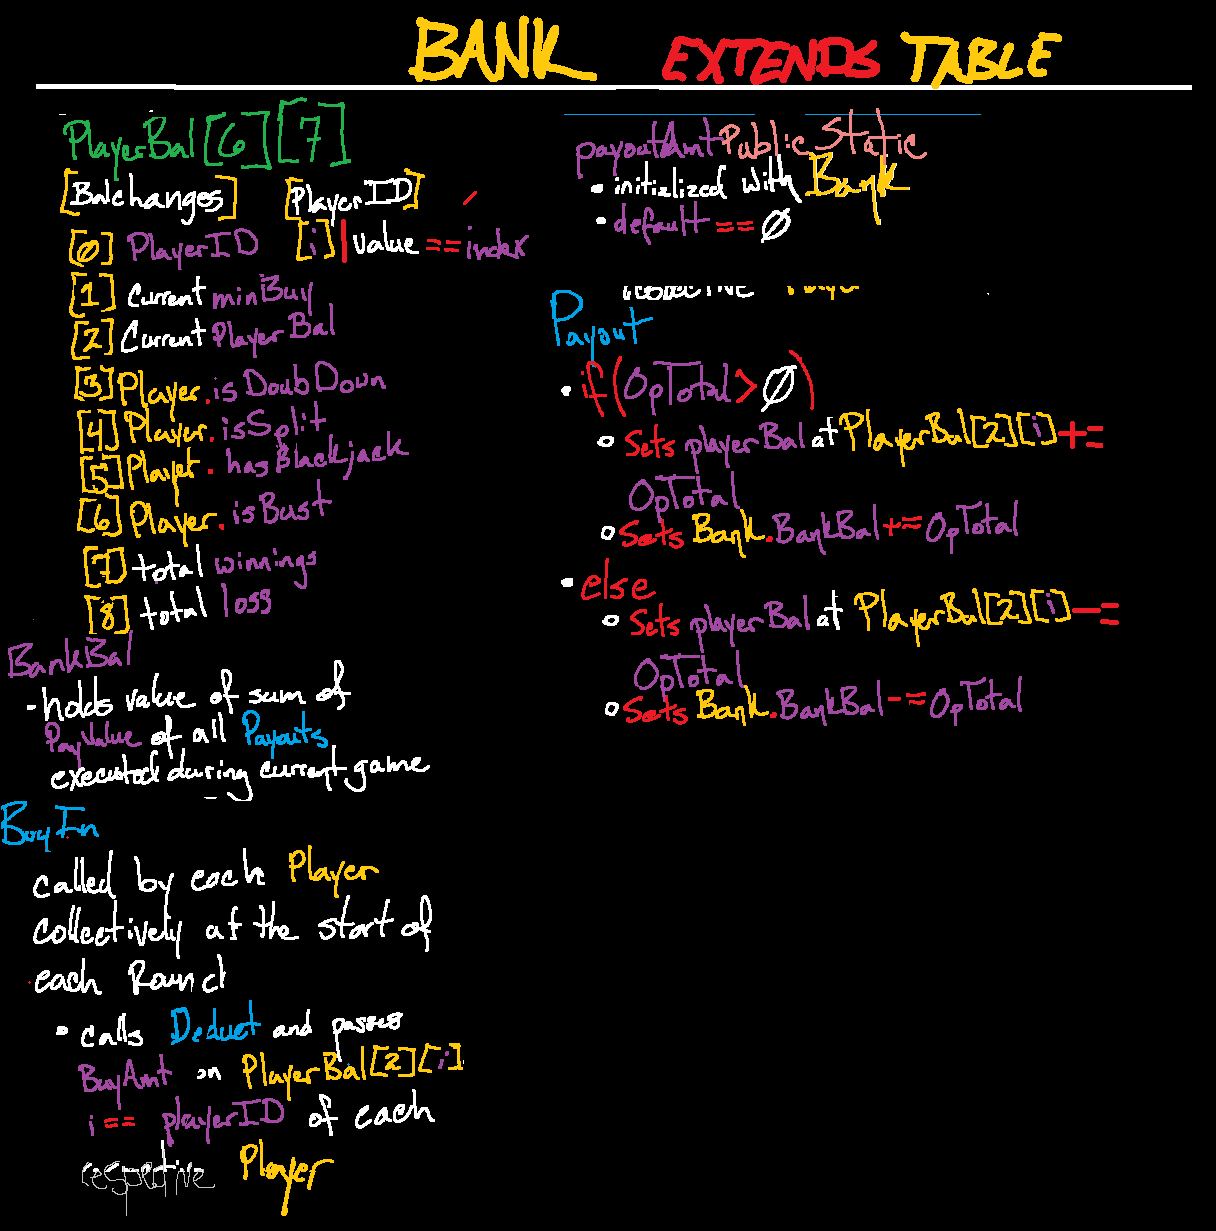 BANK EXTENDS TABLE
PlayerBal[6][7]
[Balchanges] [PlayerID]
[0] PlayerID [i] | value == index
[1] Current minBuy
[2] Current PlayerBal
[3] Player.isDoubDown
[4] Player.isSplit
[5] Player.hasBlackjack
[6] Player.isBust
[7] total winnings
[8] total loss
BankBal
- holds value of sum of
PayValue of all Payouts
executed during current game
BuyIn
called by each Player
collectively at the start of
each Round
• calls Deduct and passes
BuyAmt on PlayerBal[2][i]
i == playerID of each
respective Player
payoutAmt Public Static
• initialized with Bank
• default == 0
respective Player
Payout
• if(OpTotal > 0)
o Sets playerBal at PlayerBal[2][i] +=
OpTotal
o Sets Bank.BankBal += OpTotal
• else
o Sets playerBal at PlayerBal[2][i] -=
OpTotal
o Sets Bank.BankBal -= OpTotal